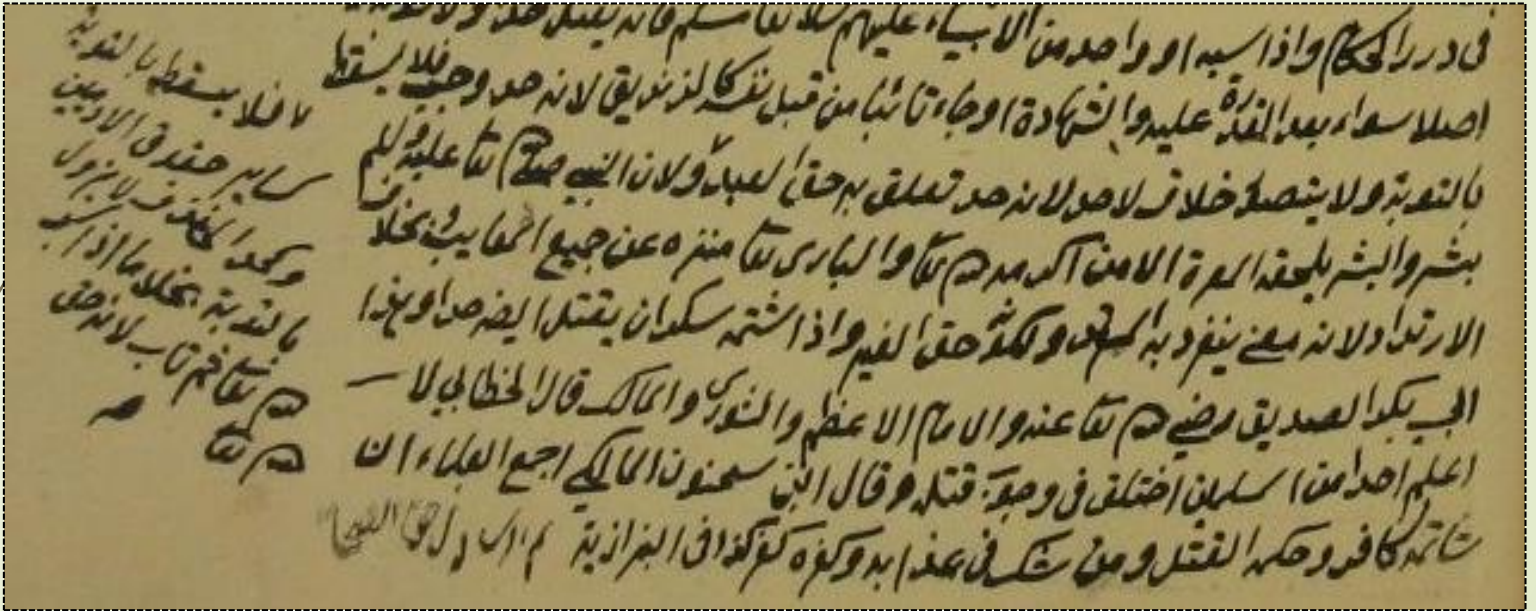 فى درر الحكام واذا سبه او واحد من الانبياء عليهم السلام مسلم فانه يقتل حدا ولا توبة له
اصلا سواء بعد القدرة عليه والشهادة او جاء تائبا من قبل نفسه كالزنديق لانه حد وجب فلا يسقط
بالتوبة ولا يتصور خلاف لاحد لانه حد تعلق به حق العبد ولان النبى صلى الله تعا عليه وسلم
بشر والبشر يلحقه المعرة الا من اكرمه الله تعا والبارى تعا منزه عن جميع المعايب بخلاف
الارتداد لانه معنى ينفرد به المرتد حق الغير واذا شتمه سكران يقتل ايضا حدا وهذا
ابى بكر الصديق رضى الله تعا عنه والامام الاعظم والثورى والمالك قال الخطابى لا
اعلم احدا من المسلمين اختلف فى وجوب قتله وقال ابن سحنون المالكى اجمع العلماء ان
شاتمه كافر وحكمه القتل ومن شك فى عذابه وكفره كفر كذا فى البزازية
فلا يسقط بالتوبة
كساير حقوق الادميين
وكحد القذف لا يزول
بالتوبة بخلاف ما اذا سب
الله تعا ثم تاب لانه حق
الله تعا